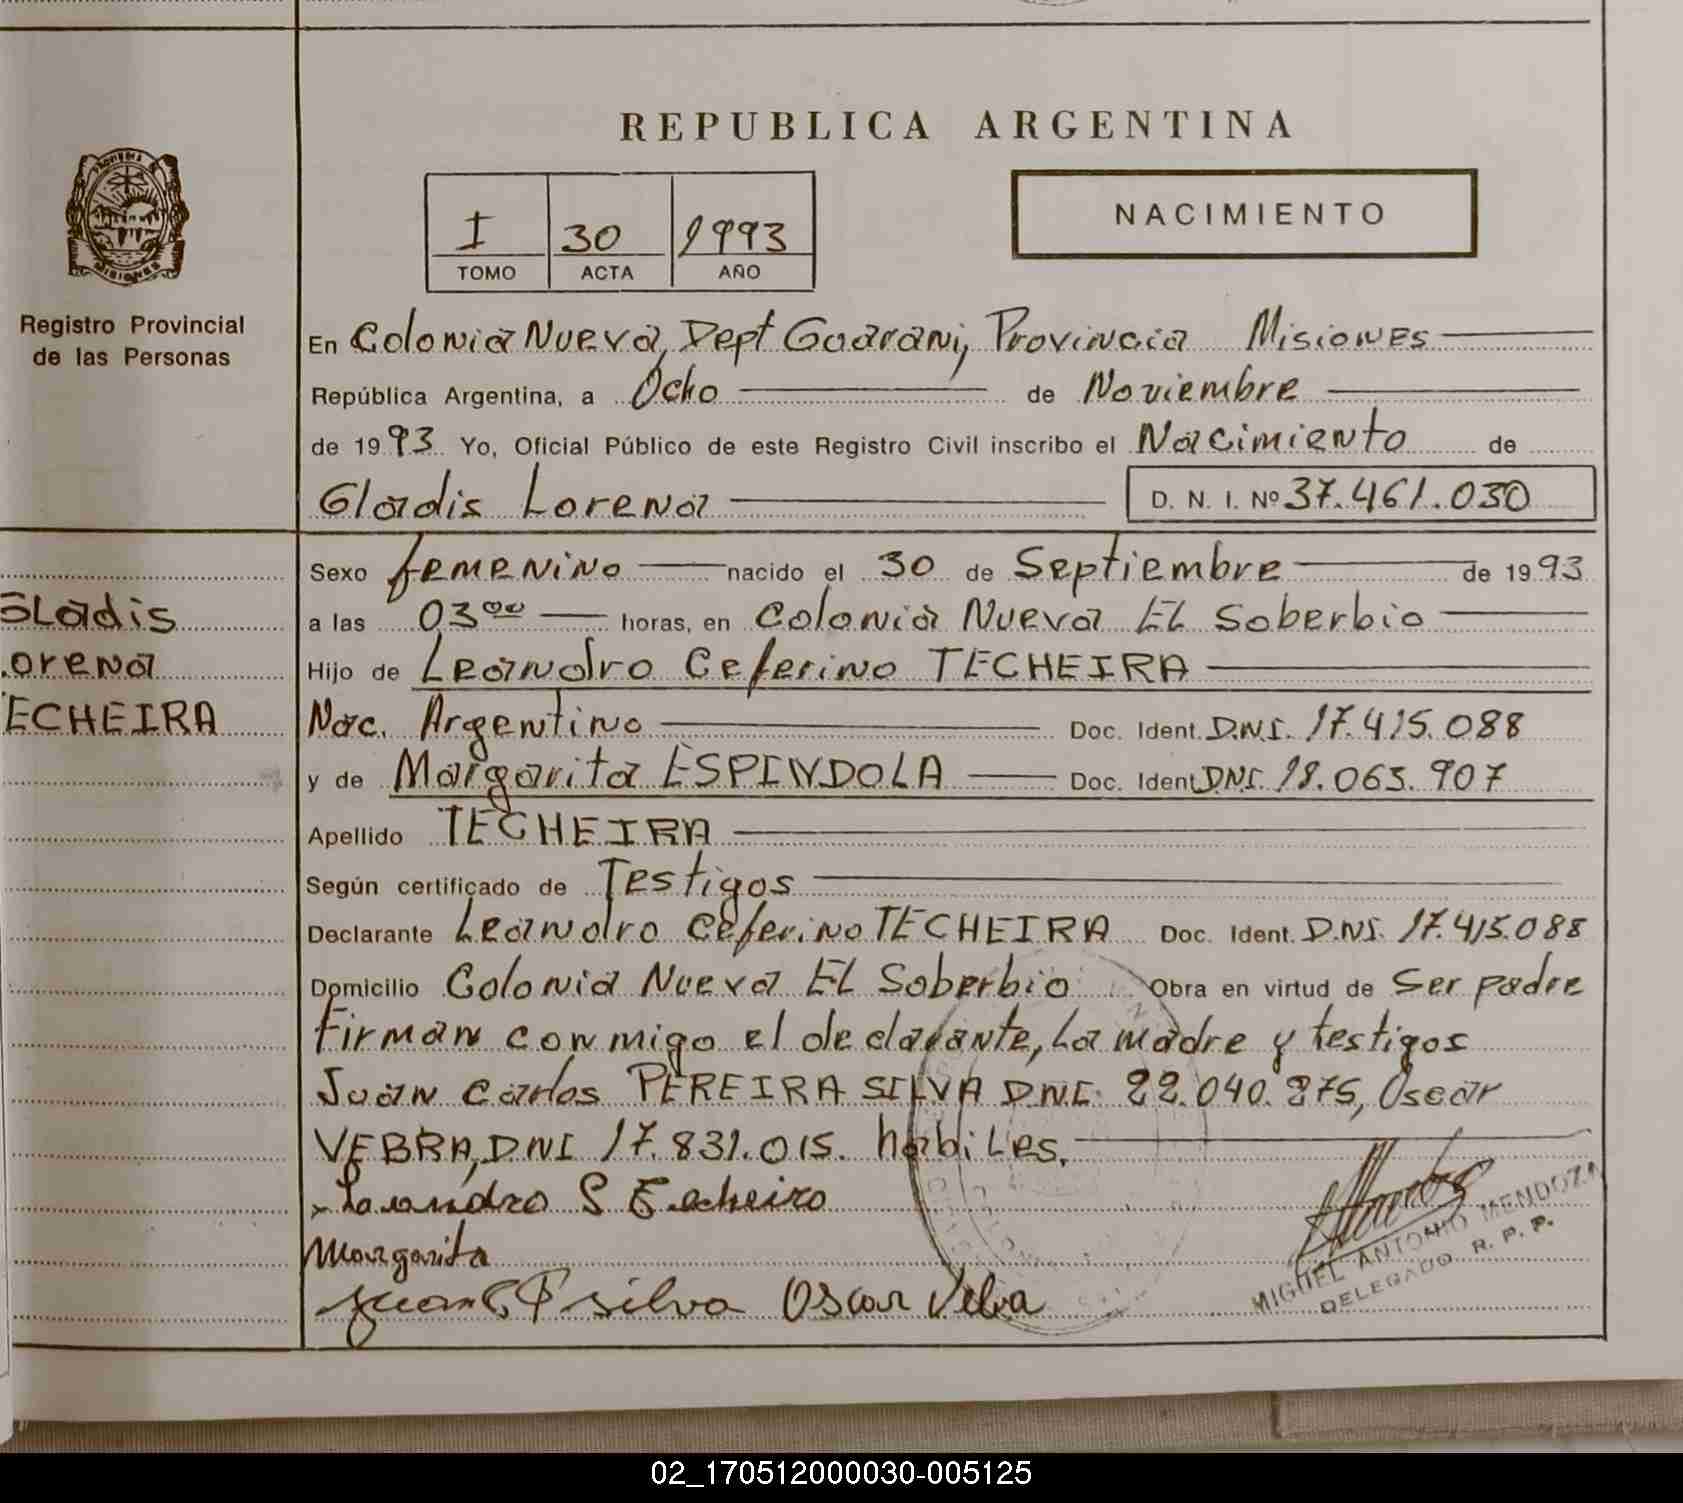 REPUBLICA ARGENTINA
I 30 1993
TOMO ACTA AÑO
NACIMIENTO
MISIONES
Registro Provincial
de las Personas
En Colonia Nueva, Dept Guarani, Provincia Misiones
República Argentina, a Ocho de Noviembre
de 1993 Yo, Oficial Público de este Registro Civil inscribo el Nacimiento de
Gladis Lorena D. N. I. Nº 37.461.030
Sexo femenino nacido el 30 de Septiembre de 1993
a las 03⁰⁰ horas, en Colonia Nueva EL Soberbio
Hijo de Leandro Ceferino TECHEIRA
Nac. Argentino Doc. Ident. D.N.I. 17.415.088
y de Margarita ESPINDOLA Doc. Ident D.N.I. 18.063.907
Apellido TECHEIRA
Según certificado de Testigos
Declarante Leandro Ceferino TECHEIRA Doc. Ident. D.N.I. 17.415.088
Domicilio Colonia Nueva EL Soberbio Obra en virtud de Ser padre
Firman conmigo el declarante, La madre y testigos
Juan Carlos PEREIRA SILVA D.N.I. 22.040.275, Oscar
VEBRA, D.N.I 17.831.015. habiles.
Gladis
Lorena
TECHEIRA
Margarita
silva Oscar
MIGUEL ANTONIO MENDOZA
DELEGADO R. P. P.
02_170512000030-005125